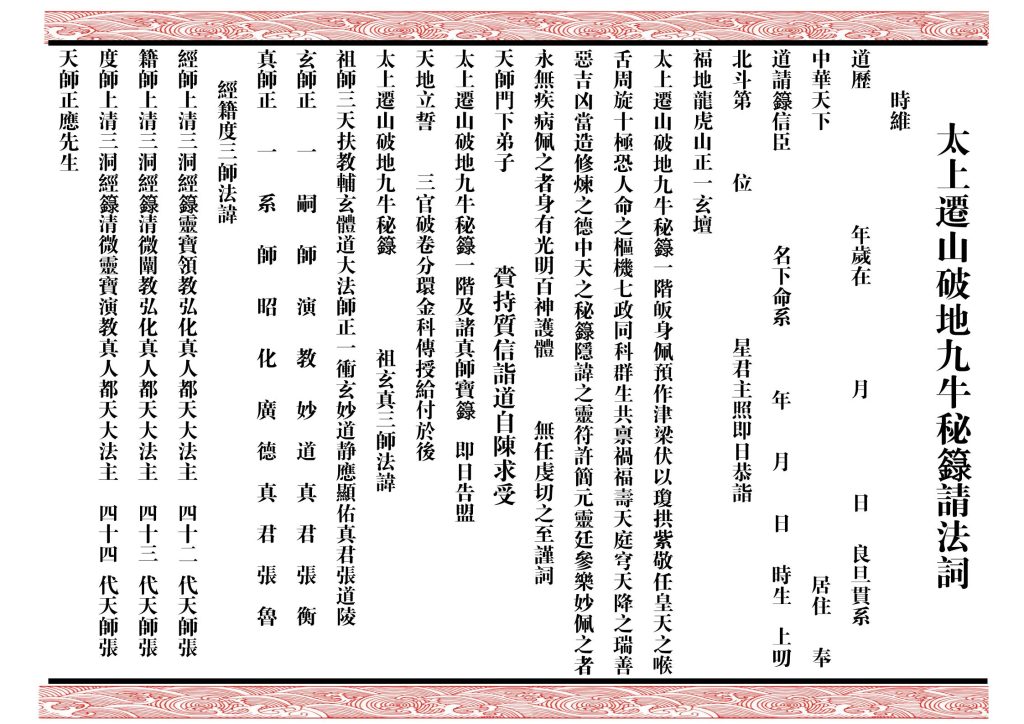 太上遷山破地九牛秘籙請法詞
時維
道歷 年歲在 月 日 良旦貫系
中華天下 居住 奉
道請籙信臣 名下命系 年 月 日 時生 上叨
北斗第 位 星君主照即日恭詣
福地龍虎山正一玄壇
太上遷山破地九牛秘籙一階皈身佩預作津梁伏以瓊拱紫敬任皇天之喉
舌周旋十極恐人命之樞機七政同科群生共禀禍福壽天庭穹天降之瑞善
惡吉凶當造修煉之德中天之秘籙隱諱之靈符許簡元靈廷參樂妙佩之者
永無疾病佩之者身有光明百神護體 無任虔切之至謹詞
天師門下弟子 賫持質信詣道自陳求受
太上遷山破地九牛秘籙一階及諸真師寶籙 即日告盟
天地立誓 三官破卷分環金科傳授給付於後
太上遷山破地九牛秘籙 祖玄真三師法諱
祖師三天扶教輔玄體道大法師正一衝玄妙道静應顯佑真君張道陵
玄師正一嗣師演教妙道真君張衡
真師正一系師昭化廣德真君張魯
經籍度三師法諱
經師上清三洞經籙靈寶領教弘化真人都天大法主 四十二 代天師張
籍師上清三洞經籙清微闡教弘化真人都天大法主 四十三 代天師張
度師上清三洞經籙清微靈寶演教真人都天大法主 四十四 代天師張
天師正應先生